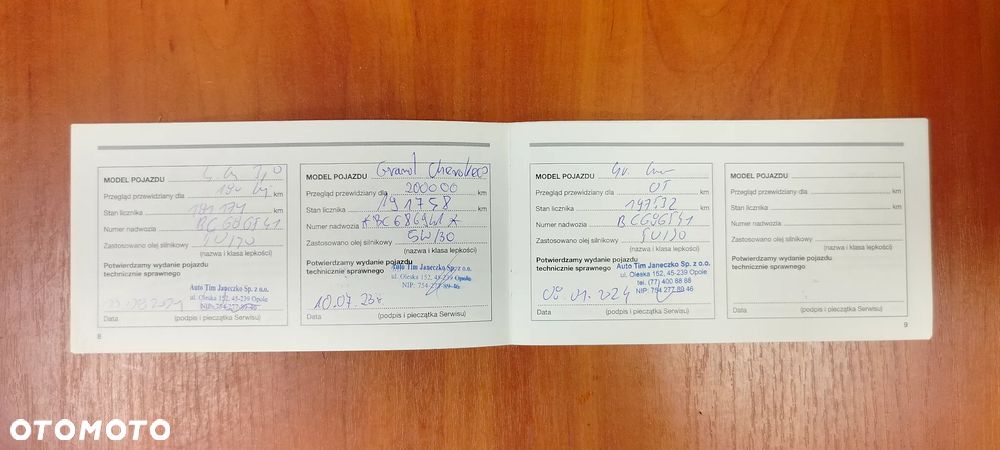 MODEL POJAZDU
Przegląd przewidziany dla 190 km
Stan licznika 181171 km
Numer nadwozia
Zastosowano olej silnikowy 5W/30
(nazwa i klasa lepkości)
Potwierdzamy wydanie pojazdu
technicznie sprawnego
Auto Tim Janeczko Sp. z o.o.
ul. Oleska 152, 45-239 Opole
NIP: 754-277-89-46
Data (podpis i pieczątka Serwisu)
8
MODEL POJAZDU Grand Cherokee
Przegląd przewidziany dla 200000 km
Stan licznika 191758 km
Numer nadwozia
Zastosowano olej silnikowy 5W/30
(nazwa i klasa lepkości)
Potwierdzamy wydanie pojazdu
technicznie sprawnego
Auto Tim Janeczko Sp. z o.o.
ul. Oleska 152, 45-239 Opole
NIP: 754-277-89-46
10.07.23r
Data (podpis i pieczątka Serwisu)
MODEL POJAZDU
Przegląd przewidziany dla km
Stan licznika 197532 km
Numer nadwozia
Zastosowano olej silnikowy 5W/30
(nazwa i klasa lepkości)
Potwierdzamy wydanie pojazdu
technicznie sprawnego
Auto Tim Janeczko Sp. z o.o.
ul. Oleska 152, 45-239 Opole
tel. (77) 400 88 88
NIP: 754 277 89 46
08.01.2024
Data (podpis i pieczątka Serwisu)
MODEL POJAZDU
Przegląd przewidziany dla km
Stan licznika km
Numer nadwozia
Zastosowano olej silnikowy
(nazwa i klasa lepkości)
Potwierdzamy wydanie pojazdu
technicznie sprawnego
Data (podpis i pieczątka Serwisu)
9
OTOMOTO